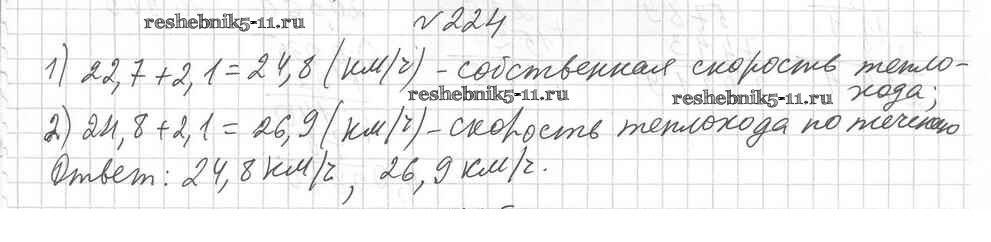 reshebnik5-11.ru
№224
1) 22,7+2,1=24,8 (км/ч) - собственная скорость тепло-
хода;
reshebnik5-11.ru reshebnik5-11.ru
2) 24,8+2,1=26,9 (км/ч) - скорость теплохода по течению
Ответ: 24,8 км/ч, 26,9 км/ч.